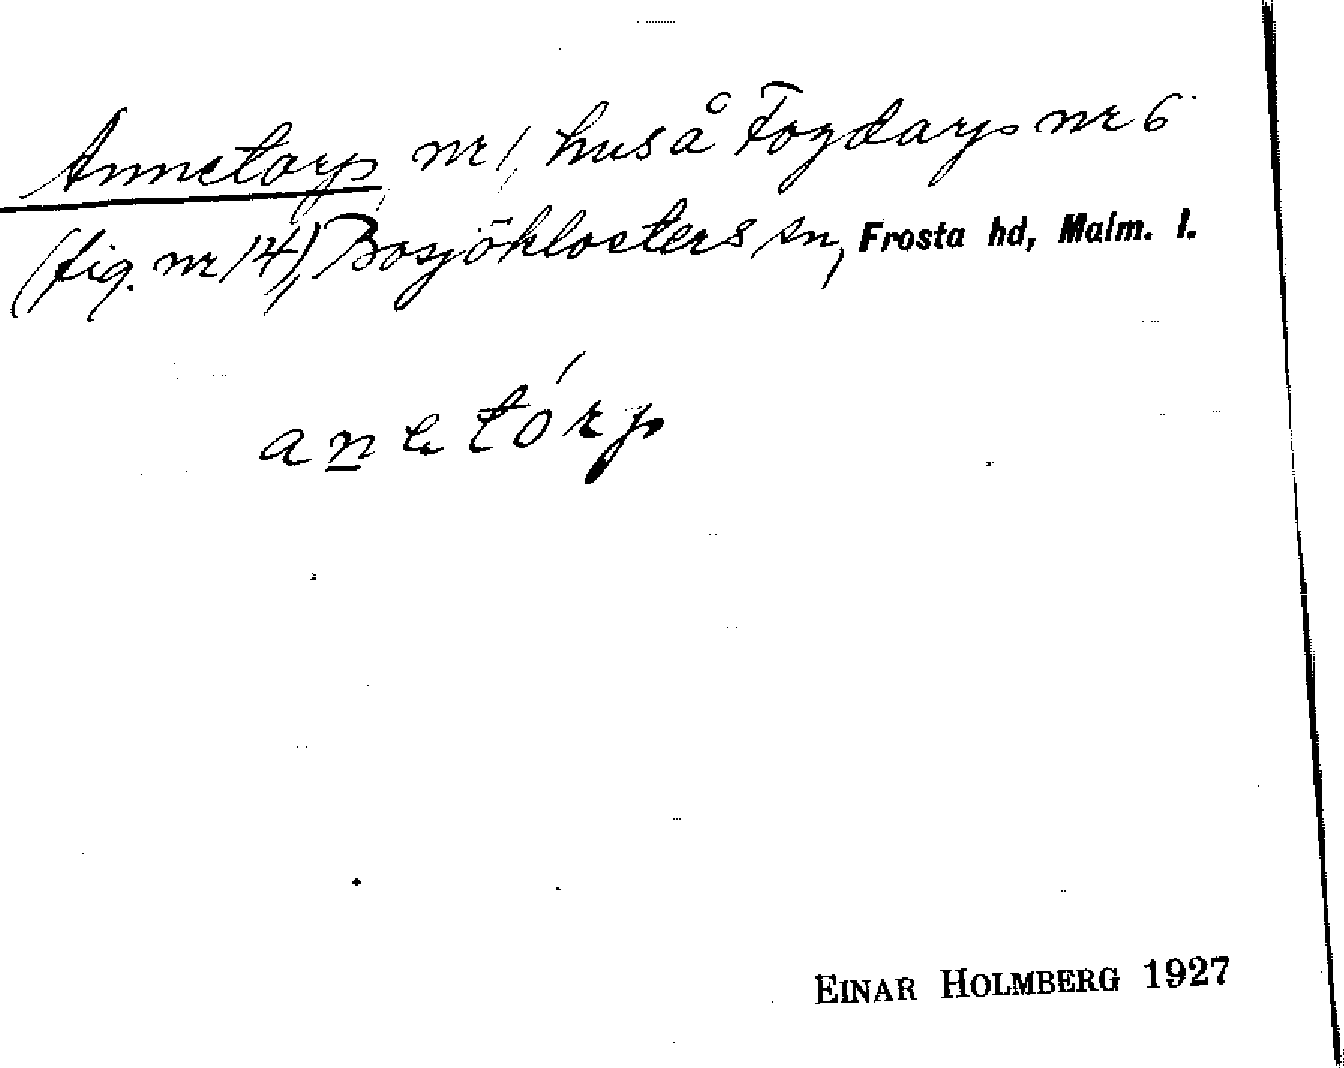 Annetorp nr 1, hus å Fogdarp nr 6
(fig. nr 14), Bosjöklosters sn, Frosta hd, Malm. l.
anetórp
EINAR HOLMBERG 1927